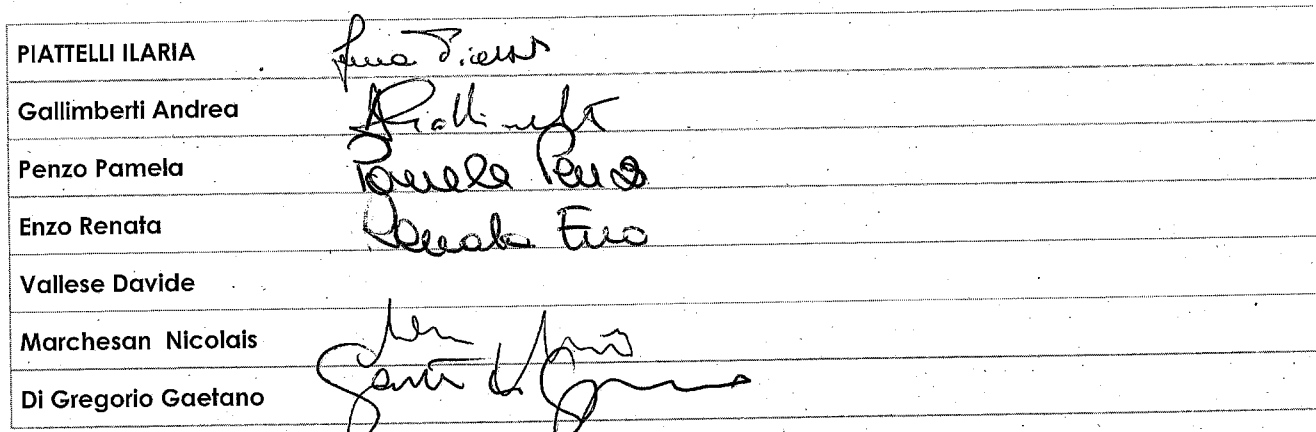 PIATTELLI ILARIA
Gallimberti Andrea
Penzo Pamela Pamela Penzo
Enzo Renata Renata Enzo
Vallese Davide
Marchesan Nicolais
Di Gregorio Gaetano